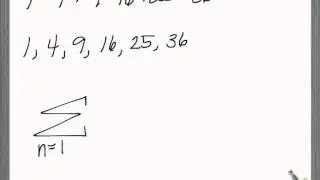 1, 4, 9, 16, 25, 36
Σ
n=1